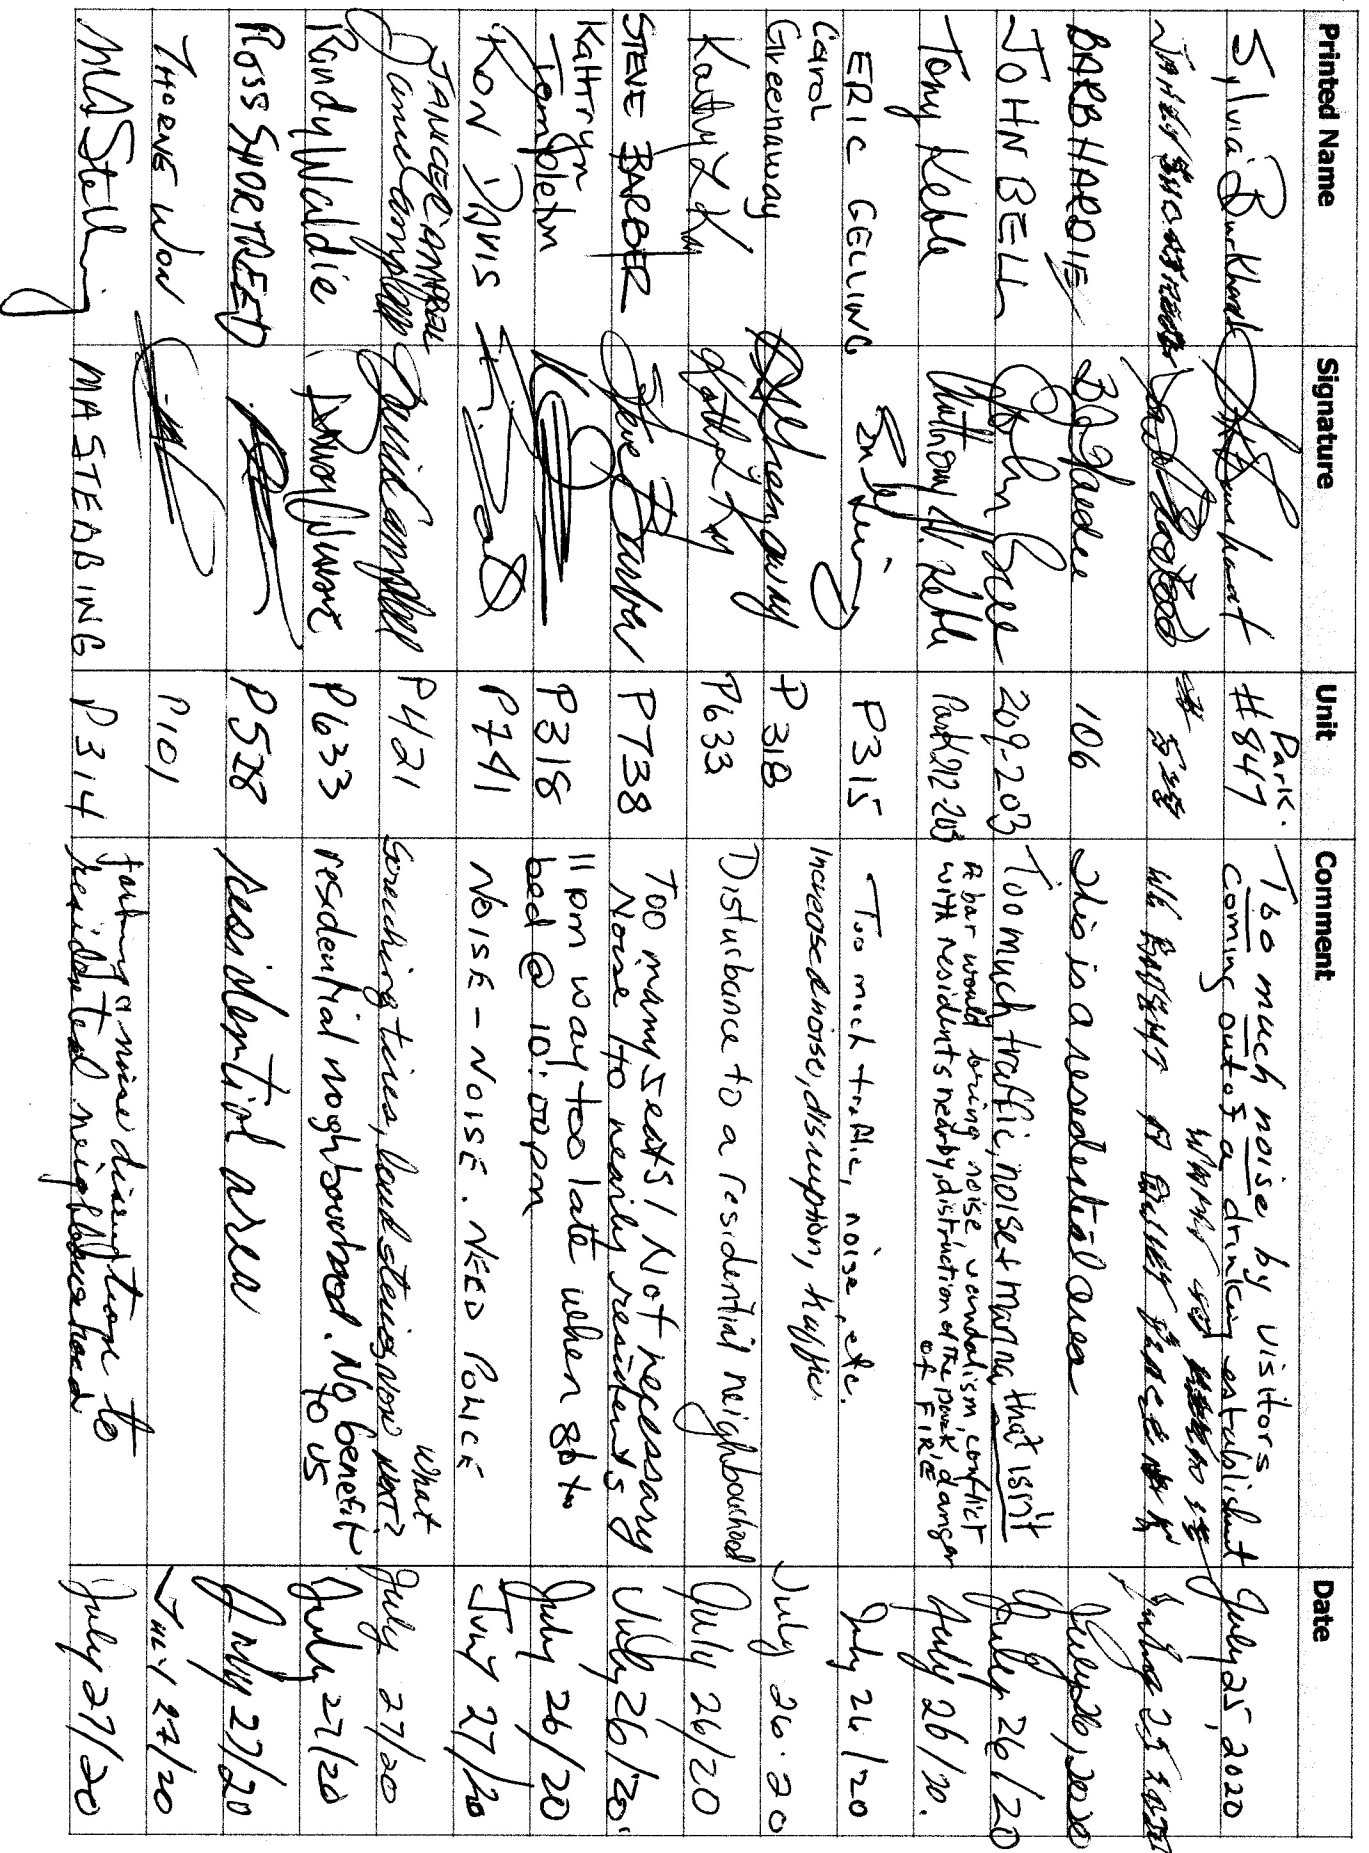 Printed Name Signature Unit Comment Date
Sylvia Burkhardt Park. #847 Too much noise by visitors July 25, 2020
coming out of a drinking establishment
July 25 2020
BARB HARDIE B Hardie 106 This is a residential area July 26, 2020
JOHN BELL John Bell 209-203 Too much traffic, noise + that isn't July 26/20
Tony Keble Anthony Keble Park 212-203 A bar would bring noise, vandalism, conflict July 26/20.
with residents nearby, distruction of the park, danger
of FIRE
ERIC GELLING P315 Too much traffic, noise, etc. July 26/20
Carol
Greenaway Greenaway P318 Increased noise, disruption, traffic. July 26.20
Kathy Kay P633 Disturbance to a residential neighbourhood July 26/20
STEVE BARBER Steve Barber P738 Too many seats! Not necessary July 26/20.
Noise to nearby residents
Kathryn
Templeton P318 11 pm way too late when go to July 26/20
bed @ 10:00 pm
RON DAVIS P741 NOISE - NOISE. NEED POLICE JULY 27/20
JANICE CAMPBELL What
Janice Campbell Janice Campbell P421 Screeching tires, loud stereos now next? July 27/20
Randy Waldie P633 residential neighbourhood. No benefit July 27/20
to us
ROSS SHORTREED P528 residential area July 27/20
THORNE WON P101 JULY 27/20
parking & noise disruption to
MASTEABING P314 residential neighbourhood July 27/20